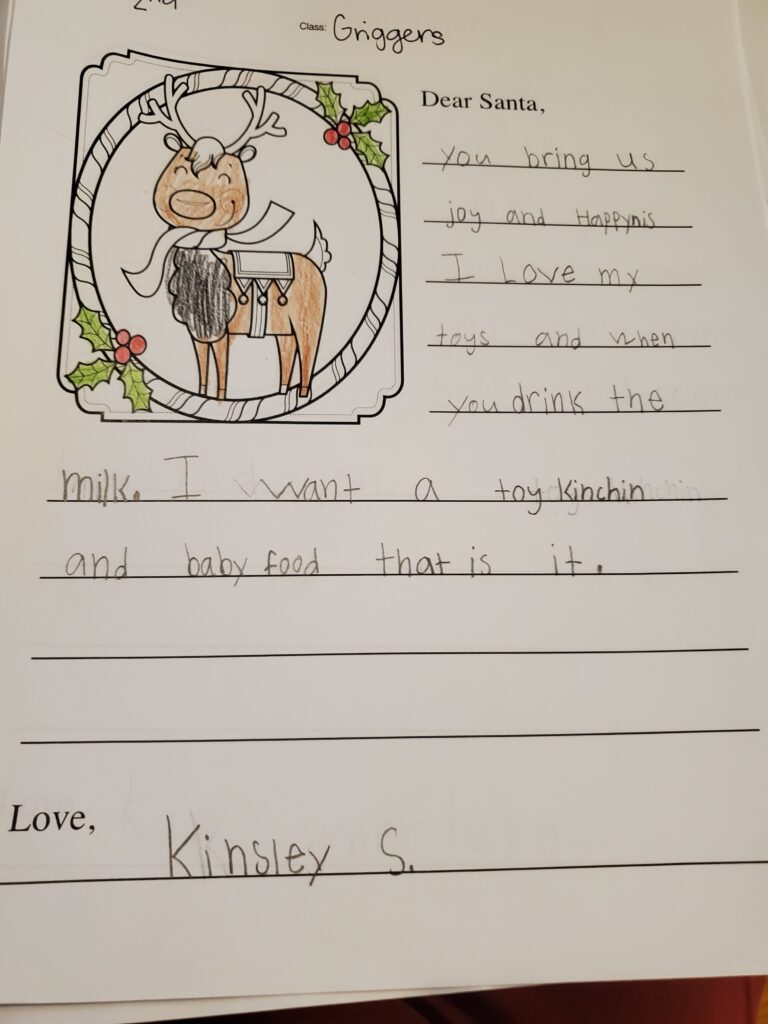 2nd
Class: Griggers
Dear Santa,
you bring us
joy and Happynis
I Love my
toys and when
you drink the
milk. I want a toy kinchin
and baby food that is it.
Love,
Kinsley S.